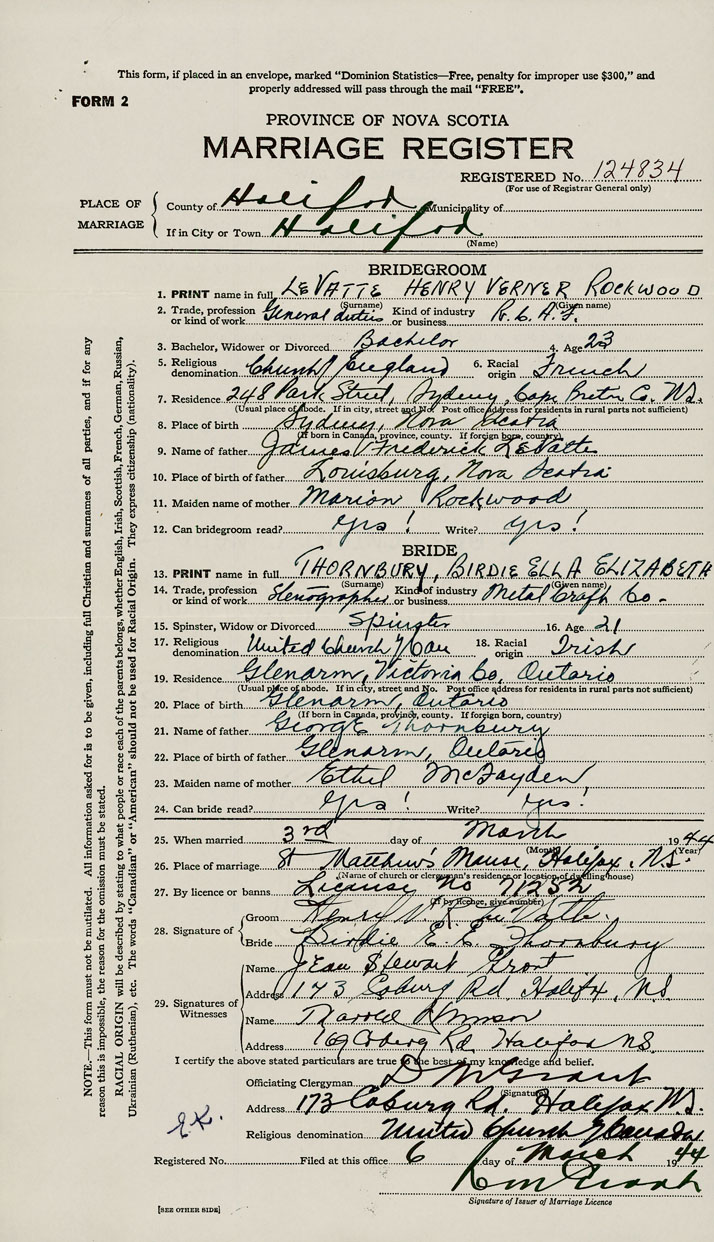 This form, if placed in an envelope, marked "Dominion Statistics—Free, penalty for improper use $300," and
properly addressed will pass through the mail "FREE".
FORM 2
PROVINCE OF NOVA SCOTIA
MARRIAGE REGISTER
REGISTERED No. 124834
(For use of Registrar General only)
PLACE OF MARRIAGE
County of Halifax Municipality of
If in City or Town Halifax
(Name)
BRIDEGROOM
1. PRINT name in full LEVATTE HENRY VERNER ROCKWOOD
(Surname) (Given name)
2. Trade, profession or kind of work General duties Kind of industry or business R.C.A.F.
3. Bachelor, Widower or Divorced Bachelor 4. Age 23
5. Religious denomination Church England 6. Racial origin French
7. Residence 248 Park Street, Sydney, Cape Breton Co. N.S.
(Usual place of abode. If in city, street and No. Post office address for residents in rural parts not sufficient)
8. Place of birth Sydney, Nova Scotia
(If born in Canada, province, county. If foreign born, country)
9. Name of father James Frederick LeVatte
10. Place of birth of father Louisburg, Nova Scotia
11. Maiden name of mother Marion Rockwood
12. Can bridegroom read? Yes! Write? Yes!
BRIDE
13. PRINT name in full THORNBURY, BIRDIE ELLA ELIZABETH
(Surname) (Given name)
14. Trade, profession or kind of work Stenographer Kind of industry or business Metal Craft Co-
15. Spinster, Widow or Divorced Spinster 16. Age 21
17. Religious denomination United Church of Can 18. Racial origin Irish
19. Residence Glenarm, Victoria Co, Ontario
(Usual place of abode. If in city, street and No. Post office address for residents in rural parts not sufficient)
20. Place of birth Glenarm, Ontario
(If born in Canada, province, county. If foreign born, country)
21. Name of father George Thornbury
22. Place of birth of father Glenarm, Ontario
23. Maiden name of mother Ethel McFayden
24. Can bride read? Yes! Write? Yes!
25. When married 3rd day of March 1944
(Month) (Year)
26. Place of marriage St Matthew's Manse, Halifax, N.S.
(Name of church or clergyman's residence or location of dwelling house)
27. By licence or banns License No 71252
(If by licence, give number)
28. Signature of
Groom Henry V. R. LeVatte.
Bride Birdie E. E. Thornbury
29. Signatures of Witnesses
Name Jean Stewart Grant
Address 173 Coburg Rd. Halifax, N.S.
Name Harold
Address 169 Coburg Rd, Halifax N.S.
I certify the above stated particulars are true to the best of my knowledge and belief.
Officiating Clergyman D M Grant
(Signature)
Address 173 Coburg Rd. Halifax N.S.
Religious denomination United Church of Canada
Registered No. Filed at this office 6 day of March 1944
Signature of Issuer of Marriage Licence
[SEE OTHER SIDE]
NOTE.—This form must not be mutilated. All information asked for is to be given, including full Christian and surnames of all parties, and if for any
reason this is impossible, the reason for the omission must be stated.
RACIAL ORIGIN will be described by stating to what people or race each of the parents belongs, whether English, Irish, Scottish, French, German, Russian,
Ukrainian (Ruthenian), etc. The words "Canadian" or "American" should not be used for Racial Origin. They express citizenship (nationality).